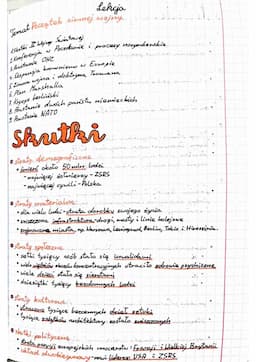 Lekcja
Temat: Początek zimnej wojny.
1. Skutki II Wojny Światowej
2. Konferencja w Poczdamie i procesy norymberskie
3. Powstanie ONZ
4. Ekspansja komunizmu w Europie
5. Zimna wojna i doktryna Trumana
6. Plan Marshalla
7. Kryzys berliński
8. Powstanie dwóch państw niemieckich
9. Powstanie NATO
Skutki
straty demograficzne
- śmierć około 50 mln ludzi
- najwięcej żołnierzy - ZSRS
- najwięcej cywili - Polska
straty materialne
- dla wielu ludzi - strata dorobku swojego życia
- zniszczona infrastruktura - drogi, mosty i linie kolejowe
- zrujnowane miasta, np. Warszawa, Leningrad, Berlin, Tokio i Hiroszima
straty społeczne
- setki tysięcy osób stało się inwalidami
- wielu więźniów obozów koncentracyjnych straciło zdrowie psychiczne
- wiele dzieci stało się sierotami
- dziesiątki tysięcy bezdomnych ludzi
straty kulturowe
- tysiące bezcennych dzieł sztuki
- tysiące zabytków architektury zostało zniszczonych
skutki polityczne
- europejskich mocarstw: Francji i Wielkiej Brytanii
- układ dwubiegunowy - USA i ZSRS